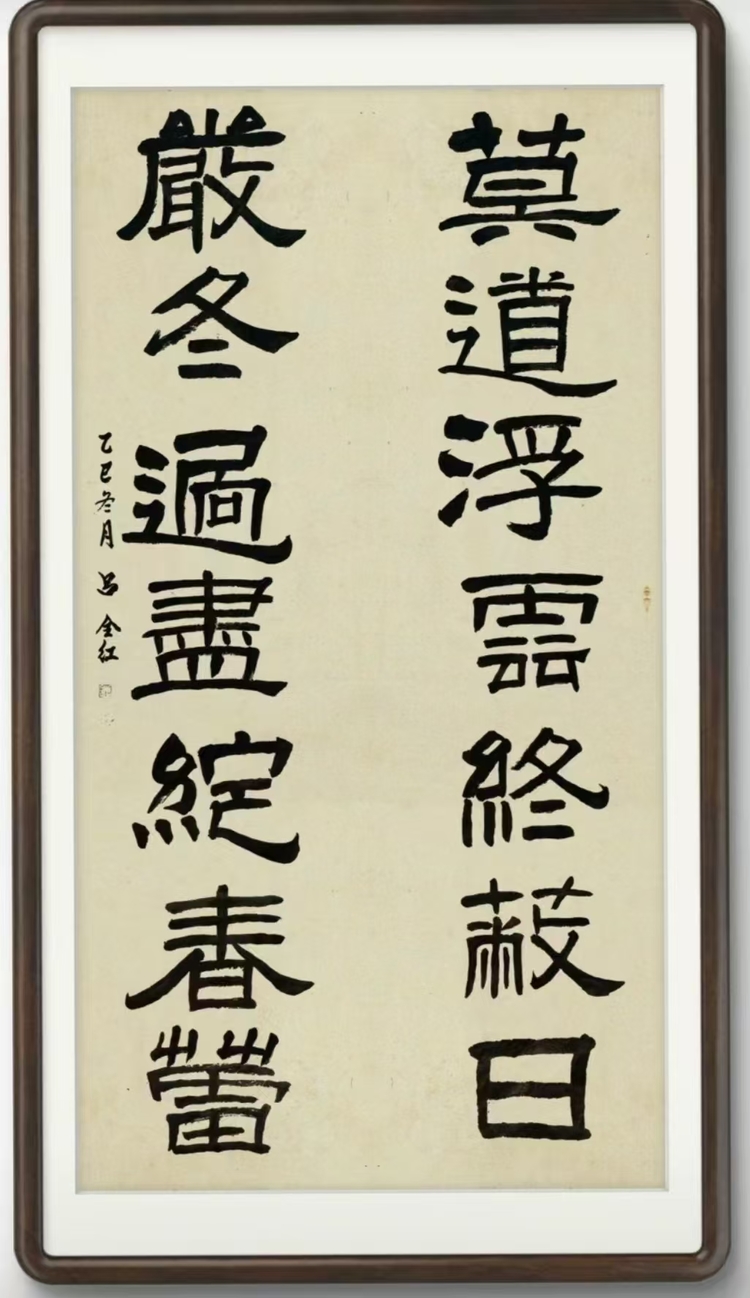 莫道浮雲終蔽日
嚴冬過盡綻春蕾
乙巳冬月 呂金红